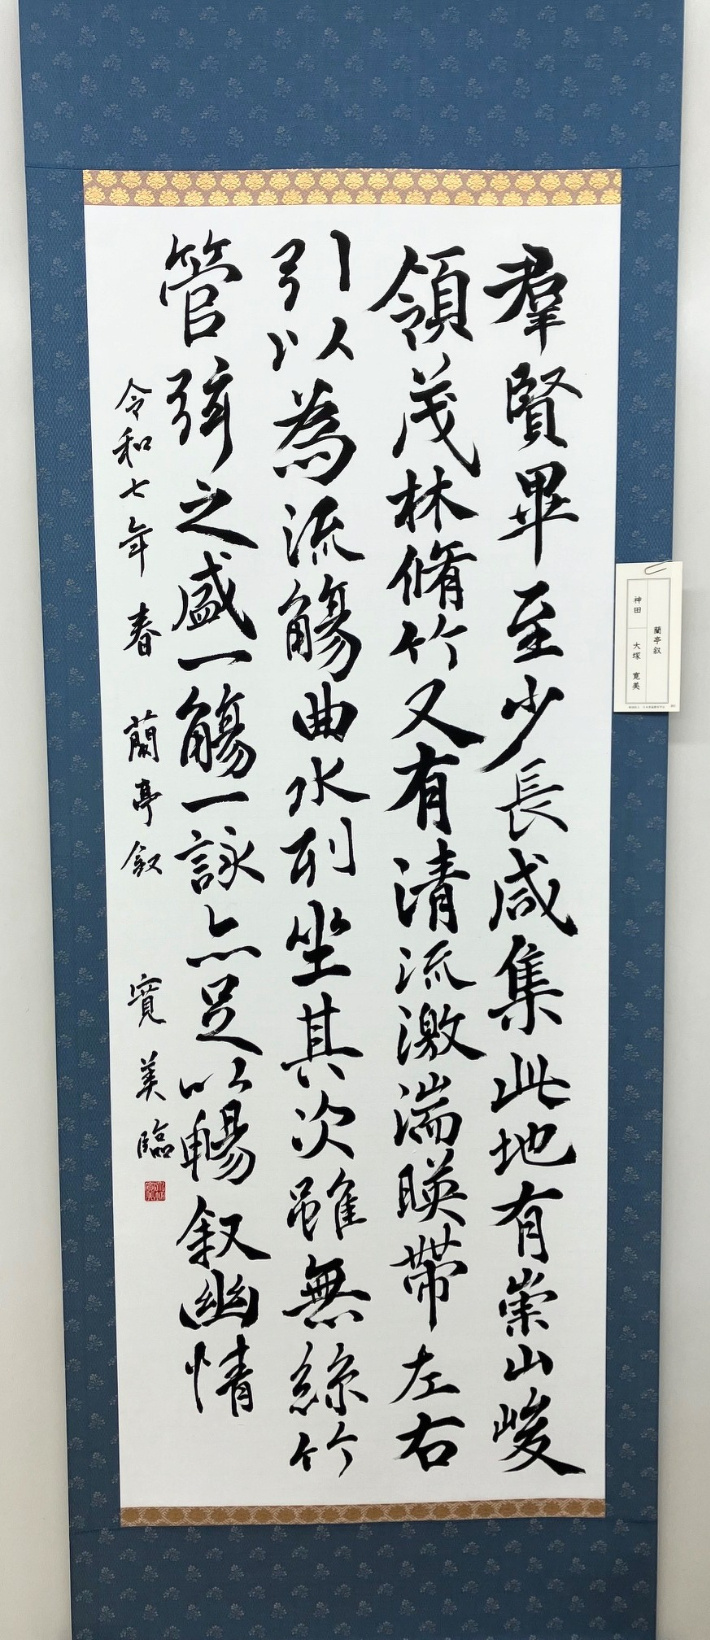 羣賢畢至少長咸集此地有崇山峻
領茂林脩竹又有清流激湍暎帶左右
引以為流觴曲水列坐其次雖無絲竹
管弦之盛一觴一詠亦足以暢叙幽情
令和七年 春 蘭亭叙 寛美臨
蘭亭叙
神田 大塚 寛美